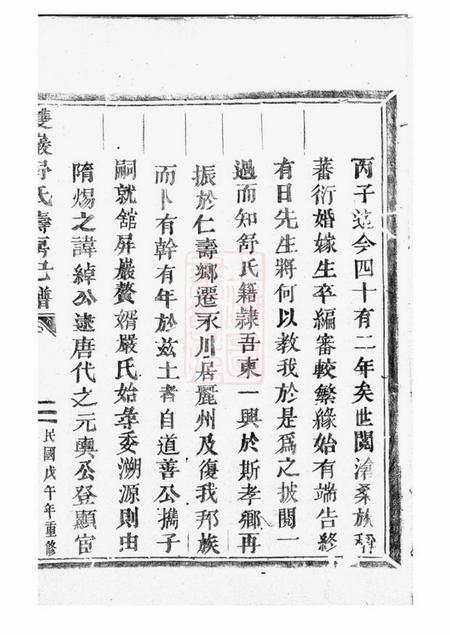 丙子迄今四十有二年矣世閱滄桑族
蕃衍婚嫁生卒編審較繁緣始有端告終
有日先生將何以教我於是爲之披閱一
過而知舒氏籍隸吾東一興於斯孝鄉再
振於仁壽鄉遷永川居麗州及復我邦族
而卜有幹有年於兹土者自道善公攜子
嗣就舘屏巖贅婿嚴氏始尋委溯源則由
隋煬之諱綽公逮唐代之元輿公登顯宦
雙巖舒氏壽房七譜
二
民國戊午年重修